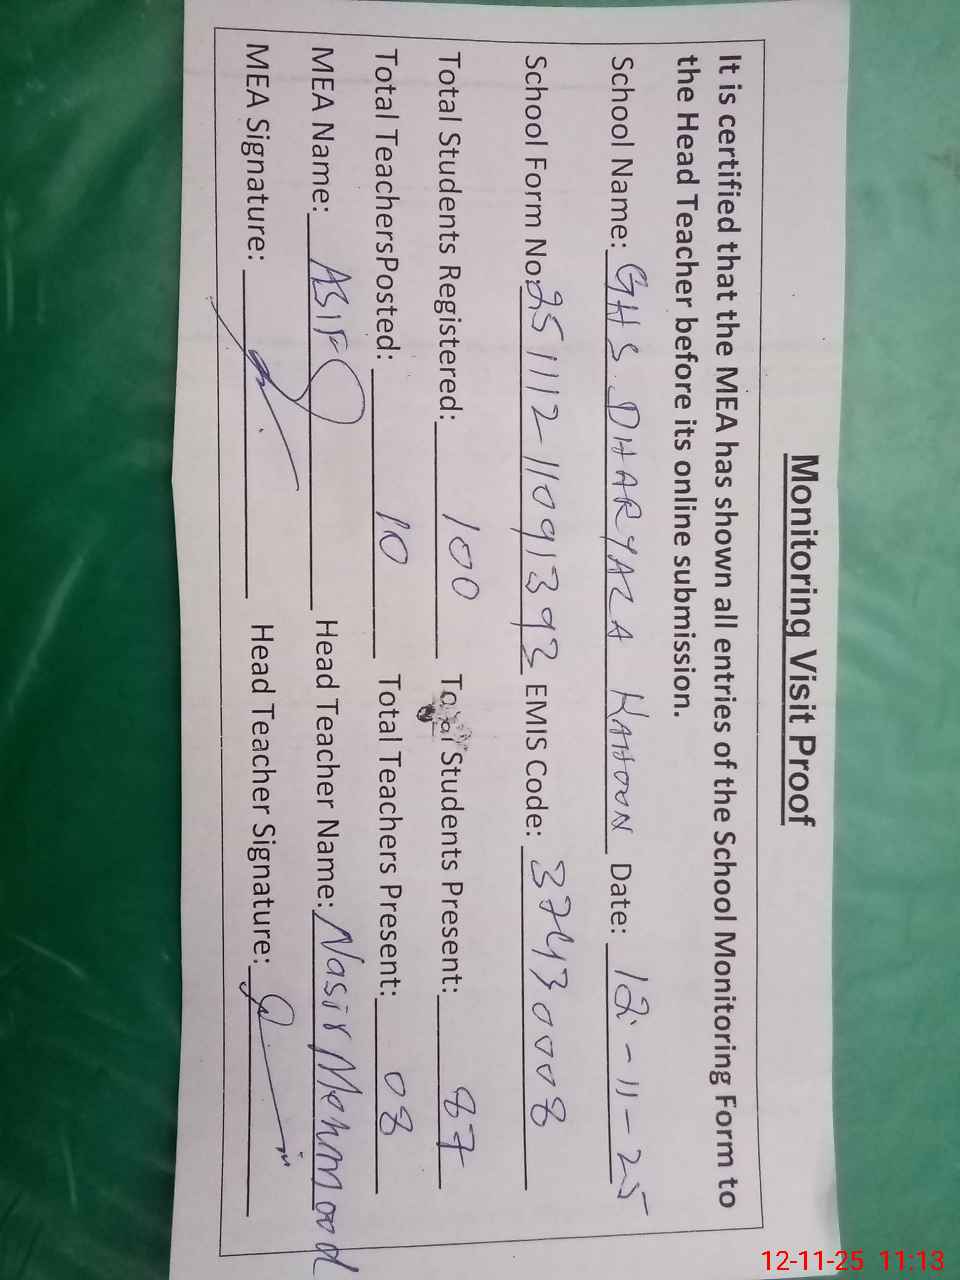 Monitoring Visit Proof
It is certified that the MEA has shown all entries of the School Monitoring Form to
the Head Teacher before its online submission.
School Name: GHS DHARYALA KAHOON Date: 12-11-25
School Form No: 251112-11091393 EMIS Code: 37430008
Total Students Registered: 100 Total Students Present: 87
Total TeachersPosted: 10 Total Teachers Present: 08
MEA Name: ASIF Head Teacher Name: Nasir Mehmood
MEA Signature: Head Teacher Signature:
12-11-25 11:13